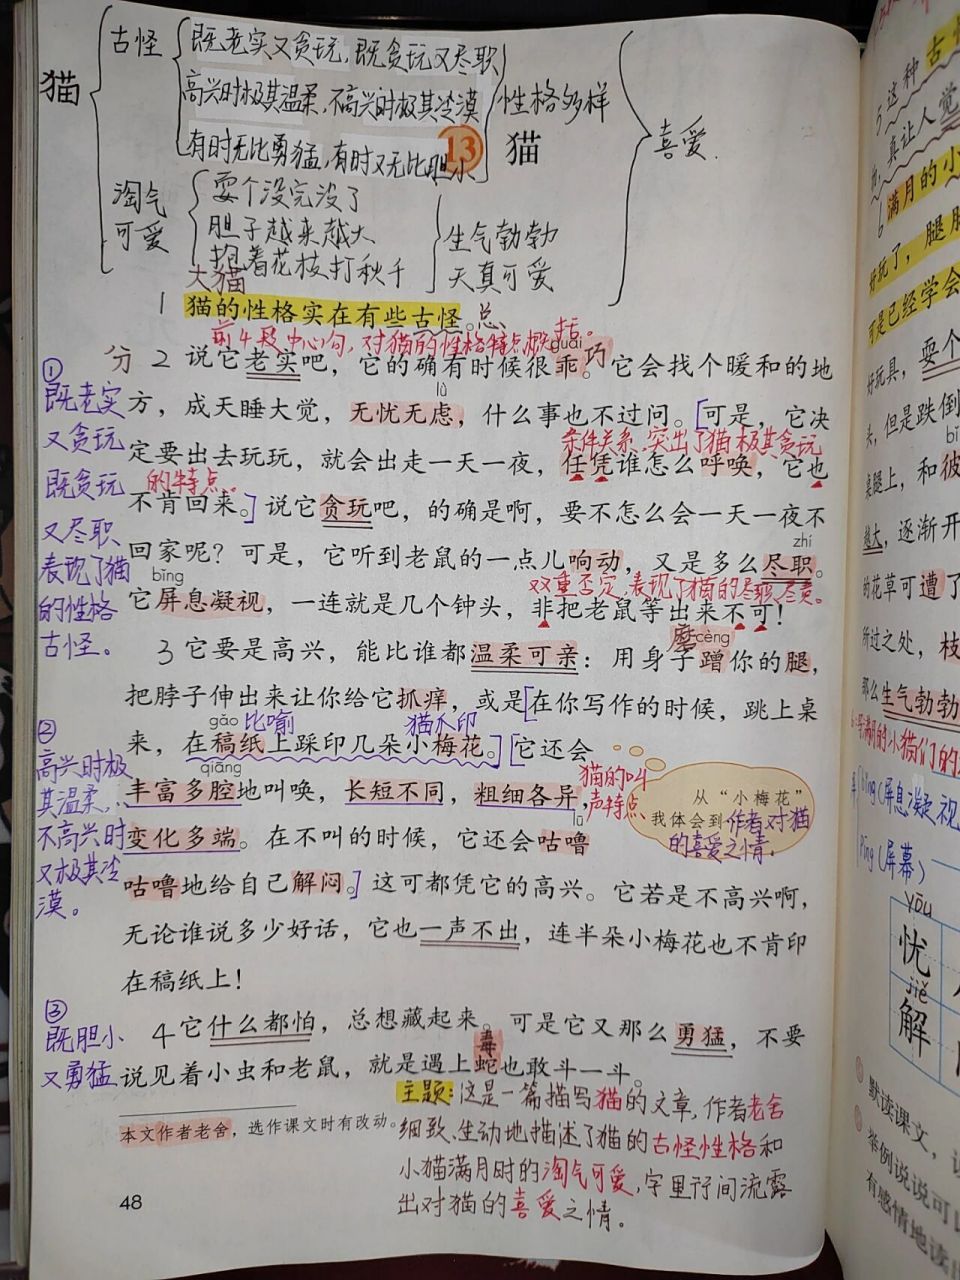 猫
古怪
既老实又贪玩，既贪玩又尽职
高兴时极其温柔，不高兴时极其冷漠
有时无比勇猛，有时又无比胆小
性格多样
喜爱.
13 猫
淘气
可爱
耍个没完没了
胆子越来越大
抱着花枝打秋千
生气勃勃
天真可爱
大猫
1 猫的性格实在有些古怪。总
前4段中心句，对猫的性格特点
guāi 巧
分 2 说它老实吧，它的确有时候很乖。它会找个暖和的地
lǜ
方，成天睡大觉，无忧无虑，什么事也不过问。[可是，它决
条件关系，突出了猫极其贪玩
定要出去玩玩，就会出走一天一夜，任凭谁怎么呼唤，它也
的特点。
不肯回来。]说它贪玩吧，的确是啊，要不怎么会一天一夜不
zhí
回家呢？可是，它听到老鼠的一点儿响动，又是多么尽职。
bǐng
双重否定，表现了猫的尽职尽责。
它屏息凝视，一连就是几个钟头，非把老鼠等出来不可！
①
既老实
又贪玩
既贪玩
又尽职
表现了猫
的性格
古怪。
磨 cèng
3 它要是高兴，能比谁都温柔可亲：用身子蹭你的腿，
把脖子伸出来让你给它抓痒，或是[在你写作的时候，跳上桌
gǎo 比喻 猫爪印
来，在稿纸上踩印几朵小梅花。]它还会
qiāng
丰富多腔地叫唤，长短不同，粗细各异，
猫的叫
声特点
lū
变化多端。在不叫的时候，它还会咕噜
咕噜地给自己解闷。]这可都凭它的高兴。它若是不高兴啊，
无论谁说多少好话，它也一声不出，连半朵小梅花也不肯印
在稿纸上！
从“小梅花”
我体会到作者对猫
的喜爱之情。
②
高兴时极
其温柔，
不高兴时
又极其冷
漠。
4 它什么都怕，总想藏起来。可是它又那么勇猛，不要
毒
说见着小虫和老鼠，就是遇上蛇也敢斗一斗。
③
既胆小
又勇猛
主题：这是一篇描写猫的文章，作者老舍
细致、生动地描述了猫的古怪性格和
小猫满月时的淘气可爱，字里行间流露
出对猫的喜爱之情。
本文作者老舍，选作课文时有改动。
48
5 这种古
真让人觉
6 满月的小
好玩了，腿脚
可是已经学会
好玩具，耍个
头，但是跌倒
桌腿上，和彼
越大，逐渐开
的花草可遭了
所过之处，枝
那么生气勃勃
bǐng(屏息凝视
píng(屏幕)
yōu
忧
jiě
解
默读课文，
举例说说可
有感情地读